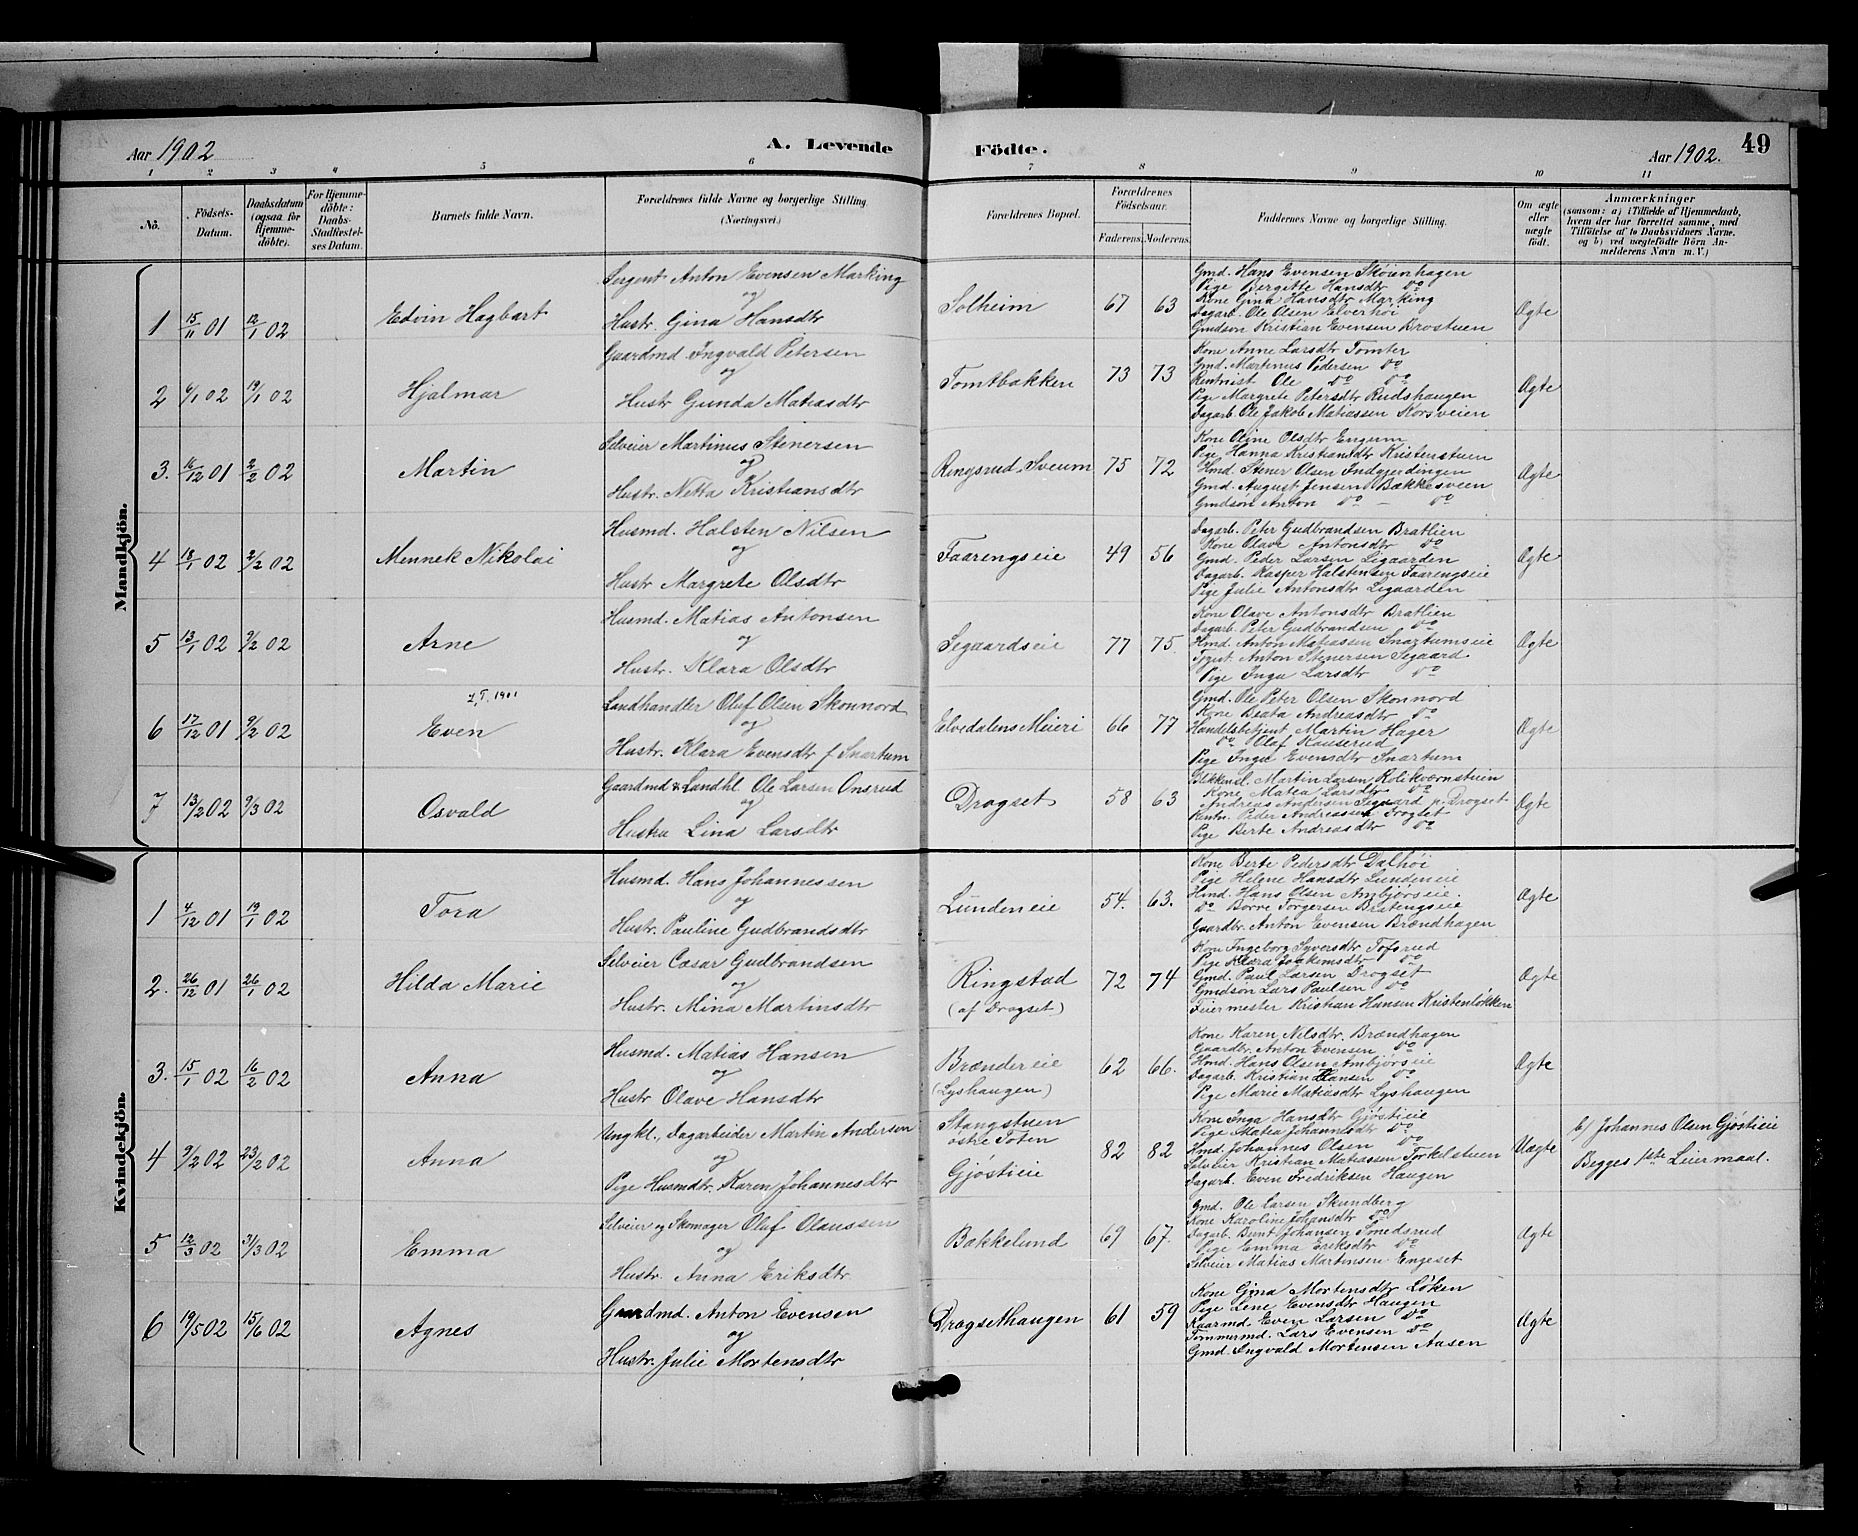 Aar 1902
A. Levende
Födte.
Aar 1902.
49
1 2 3 4 5 6 7 8 9 10 11
No.
Födsels-
Datum.
Daabsdatum
(ogsaa for
Hjemme-
döbte).
For Hjemme-
döbte:
Daabs-
Stadfæstel-
ses Datum.
Barnets fulde Navn.
Forældrenes fulde Navne og borgerlige Stilling
(Næringsvei.)
Forældrenes Bopæl.
Forældrenes
Födselsaar.
Faderens. Moderens.
Faddernes Navne og borgerlige Stilling.
Om ægte
eller
uægte
födt.
Anmærkninger
(saasom: a) i Tilfælde af Hjemmedaab,
hvem der har forrettet samme, med
Tilföielse af to Daabsvidners Navne.
og b) ved uægtefödte Börn An-
melderens Navn m. V.)
Mandkjön.
1 15/11 01 12/1 02 Edvin Hagbart
Sergent Anton Evensen Marking
og
Hustr. Gina Hansdtr
Solheim 67 63
Gmd. Hans Evensen Skøienhagen
Pige Bergitte Hansdtr do
Kone Gina Hansdtr Marking
Dagarb. Ole Olsen Elverhøi
Gmdsøn Kristian Evensen Brostuen
Ægte
2 6/1 02 19/1 02 Hjalmar
Gaardmd. Ingvald Petersen
og
Hustr Gunda Matiasdtr
Tomtbakken 73 73
Kone Anne Larsdtr Tomter
Gmd. Martinus Pedersen do
Rentnist Ole do do
Pige Margrete Petersdtr Rudshaugen
Dagarb. Ole Jakob Matiassen Korsveien
Ægte
3. 16/12 01 2/2 02 Martin
Selveier Martinus Stenersen
og
Hustr. Netta Kristiansdtr
Ringsrud, Sveum 75 72
Kone Oline Olsdtr Engum
Pige Hanna Kristiansdtr Kristenstuen
Hmd. Stener Olsen Indgjerdingen
Gmd. August Jensen Bækkesveen
Gmdsøn Anton do - do
Ægte
4 18/1 02 2/2 02 Mennek Nikolai
Husmd. Halsten Nilsen
og
Hustr Margrete Olsdtr
Faarengseie 49 56
Dagarb. Peter Gudbrandsen Bratlien
Kone Olave Antonsdtr do
Gmd. Peder Larsen Ligaarden
Dagarb. Kasper Halstensen Faarengseie
Pige Julie Antonsdtr Ligaarden
Ægte
5 13/1 02 9/2 02 Arne
Husmd. Matias Antonsen
og
Hustr. Klara Olsdtr
Segaardseie 77 75.
Kone Olave Antonsdtr Bratlien
Dagarb. Peter Gudbrandsen do
Hmd. Anton Matiassen Snartumseie
Tjgut. Anton Stenersen Segaard
Pige Inga Larsdtr do
Ægte
6 17/12 01 9/2 02 Even
Landhandler Oluf Olsen Skonnord
og
Hustr. Klara Evensdtr f. Snartum
Elvedalens Meieri 66 77
Gmd. Ole Peter Olsen Skonnord
Kone Beata Andreasdtr do
Handelsbetjent Martin Hager
do Olaf Kauserud
Pige Inga Evensdtr Snartum
Ægte
7 13/2 02 9/3 02 Osvald
Gaardmd & Landhl. Ole Larsen Onsrud
og
Hustru Lina Larsdtr
Drogset 58 63
Blikkensl. Martin Larsen Kolikværnstuen
Kone Matea Larsdtr do
Andreas Andersen Segaard p. Drogset
Rentn. Peder Andreassen Drogset
Pige Berte Andreasdtr do
Ægte
Kvindekjön.
1 4/12 01 19/1 02 Tora
Husmd. Hans Johannessen
og
Hustr. Pauline Gudbrandsdtr
Lundeneie 54. 63.
Kone Berte Pedersdtr Dalhøi
Pige Helene Hansdtr Lundeneie
Hmd. Hans Olsen Ambjørseie.
do Borre Torgersen Bratengseie
Gaardbr. Anton Evensen Brændhagen
Ægte
2. 26/12 01 26/1 02 Hilda Marie
Selveier Cæsar Gudbrandsen
og
Hustr. Mina Martinsdtr
Ringstad
(af Drogset)
72 74
Kone Ingeborg Syversdtr Tofsrud
Pige Klara Joakimsdtr do
Gmd. Paul Larsen Drogset
Gmdsøn Lars Paulsen do
Feiermester Kristian Hansen Kristenløkken
Ægte
3. 15/1 02 16/2 02 Anna
Husmd. Matias Hansen
og
Hustr Olave Hansdtr
Brændereie
(Lyshaugen)
62 66.
Kone Karen Nilsdtr. Brændhagen
Gaardbr. Anton Evensen do
Hmd. Hans Olsen Ambjørseie
Dagarb. Kristian Hansen do
Pige Marie Matiasdtr Lyshaugen
Ægte
4 9/2 02 23/2 02 Anna
Ungkl., Dagarbeider Martin Andersen
og
Pige Husmdtr. Karen Johannesdtr
Stangstuen
østre Toten
Gjøstieie
82 82
Kone Inga Hansdtr Gjøstieie
Pige Matea Johannesdtr do
Hmd. Johannes Olsen do
Selveier Kristian Matiassen Torkelstuen
Dagarb. Even Fredriksen Haugen
Uægte
b/ Johannes Olsen Gjøstieie
Begges 1ste Leiermaal.
5 12/3 02 31/3 02 Emma
Selveier og Skomager Oluf Olaussen
og
Hustr. Anna Eriksdtr
Bakkelund 69 67.
Gmd. Ole Larsen Skundberg
Kone Karoline Johansdtr do
Dagarb. Bent Johansen Smedsrud
Pige Emma Eriksdtr do
Selveier Matias Martinsen Engeset
Ægte
6 19/5 02 15/6 02 Agnes
Gaardmd. Anton Evensen
og
Hustr. Julie Mortensdtr
Drogsethaugen 61 59
Kone Gina Mortensdtr Løken
Pige Lene Evensdtr Haugen
Kaarmd. Even Larsen do
Tømmermd. Lars Evensen do
Gmd. Ingvald Mortensen Aasen
Ægte